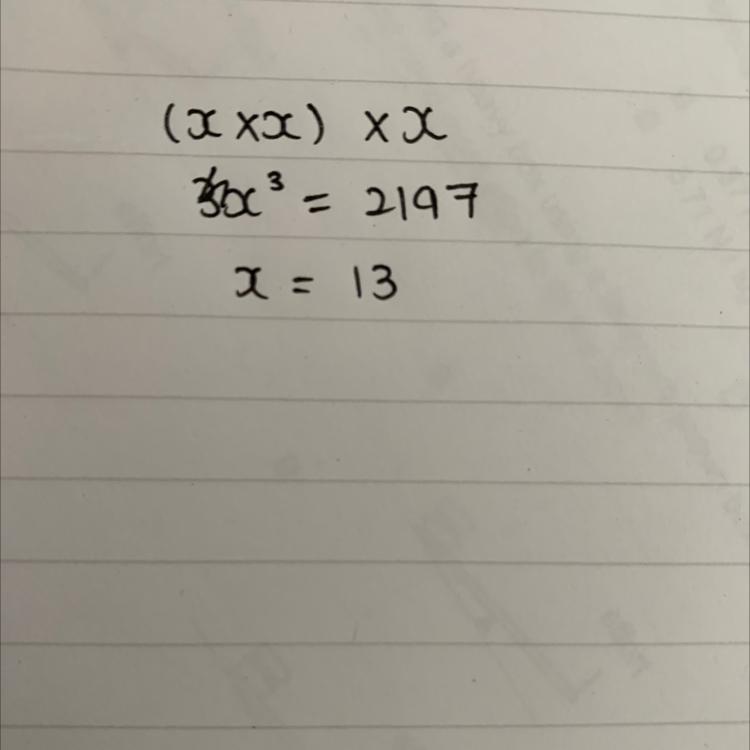 (x × x) × x
x³ = 2197
x = 13